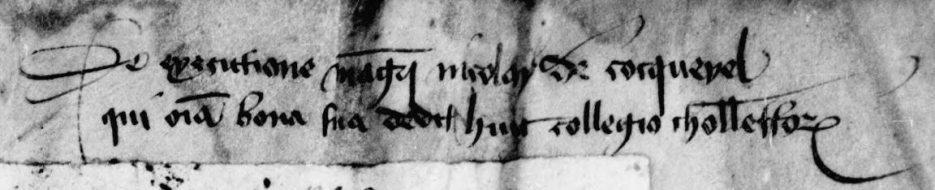 De executione mag̅ri nicolay de cocquerel
qui oi̅a bona sua dedit huic collegio cholletor̅